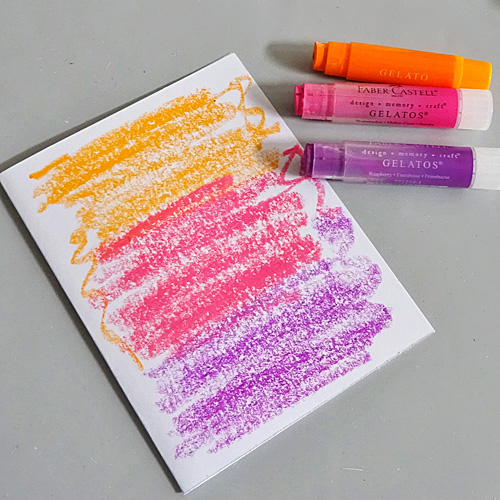 GELATO
FABER-CASTELL
design • memory • craft®
GELATOS®
design • memory • craft®
GELATOS®
Raspberry • Framboise • Frambuesa